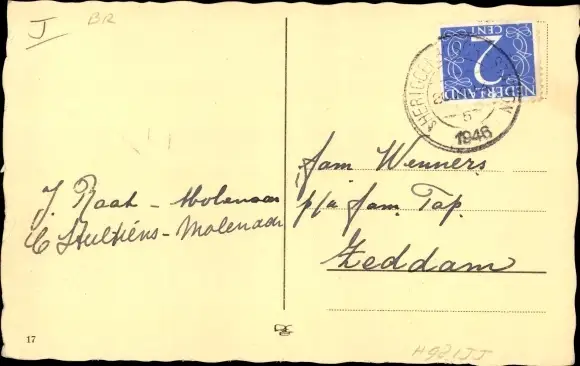 J
BR
NEDERLAND
2
CENT
1946
J. Raat - Molenaar
C Stultiëns - Molenaar
fam Wenners
p/a fam. Tap.
Zeddam
17
H921JJ